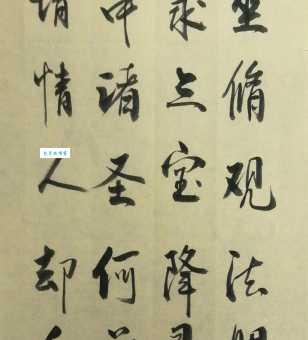 坐脩观法
求三宝降
中诸圣何
请情人却